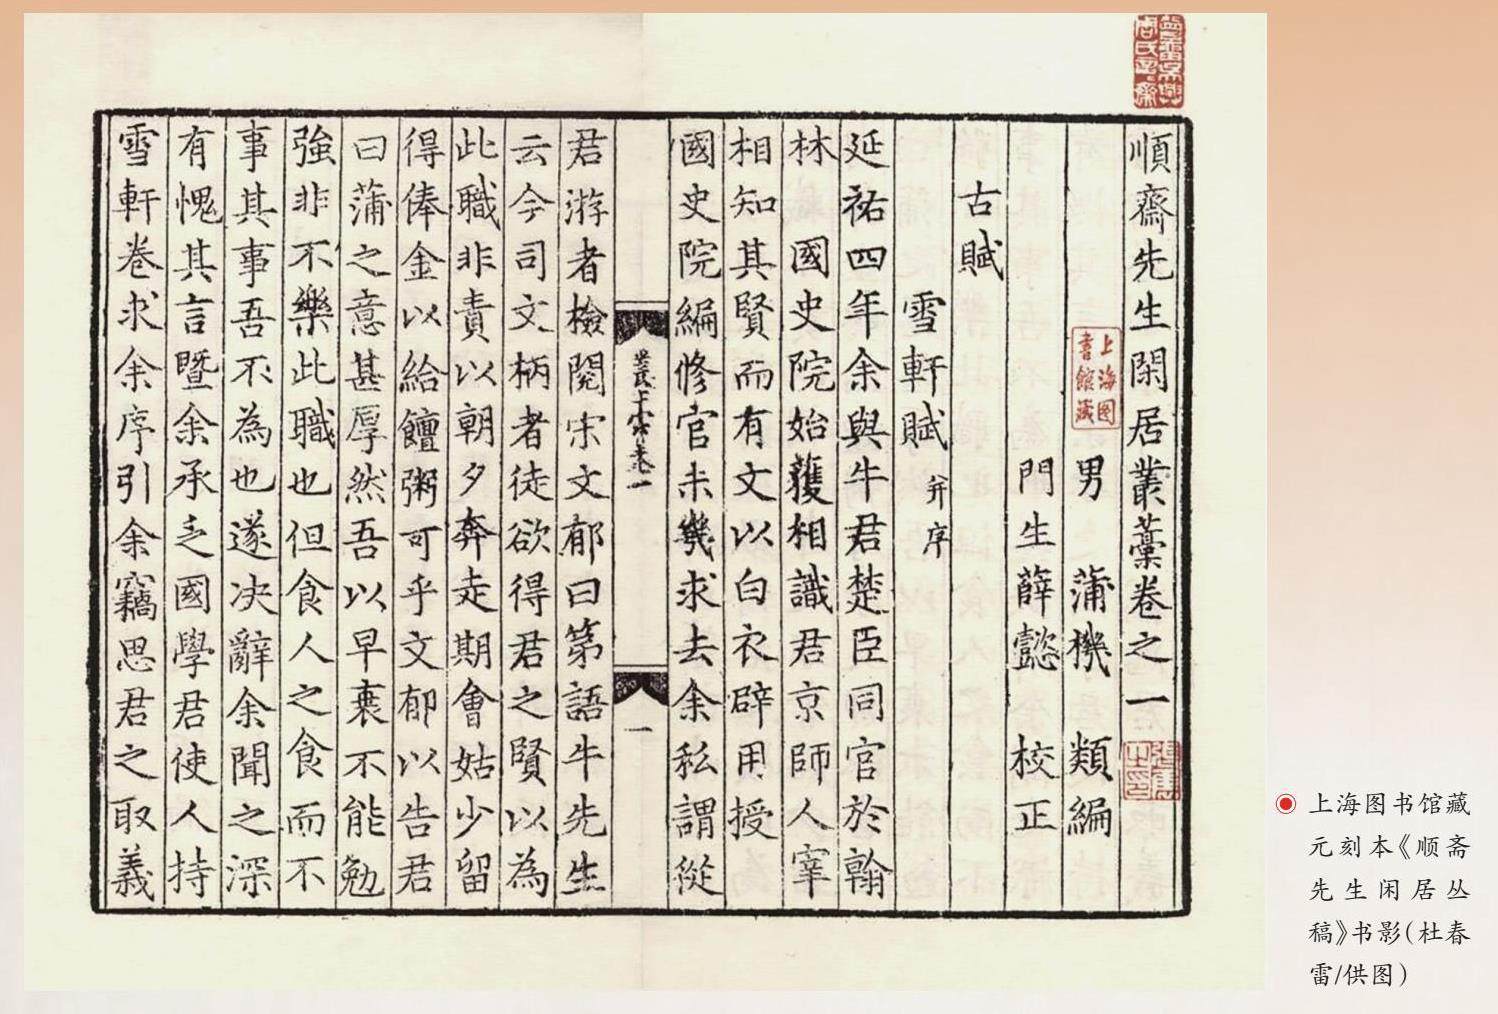 順齋先生閑居叢藁卷之一
男 蒲機 類編
門生薛懿 校正
古賦
雪軒賦 并序
延祐四年余與牛君楚臣同官於翰
林 國史院始獲相識君京師人宰
相知其賢而有文以白衣辟用授
國史院編修官未幾求去余私謂從
君游者檢閱宋文郁曰第語牛先生
云今司文柄者徒欲得君之賢以為
此職非責以朝夕奔走期會姑少留
得俸金以給饘粥可乎文郁以告君
曰蒲之意甚厚然吾以早衰不能勉
強非不樂此職也但食人之食而不
事其事吾不為也遂决辭余聞之深
有愧其言暨余承乏國學君使人持
雪軒卷求余序引余竊思君之取義
一
上海图书馆藏
上海图书馆藏
元刻本《顺斋
先生闲居丛
稿》书影(杜春
雷/供图)